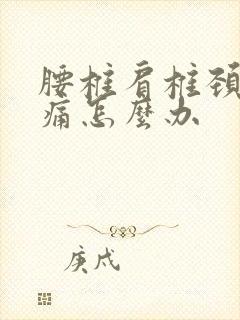 腰椎肩椎颈
痛怎麼办
庚戍